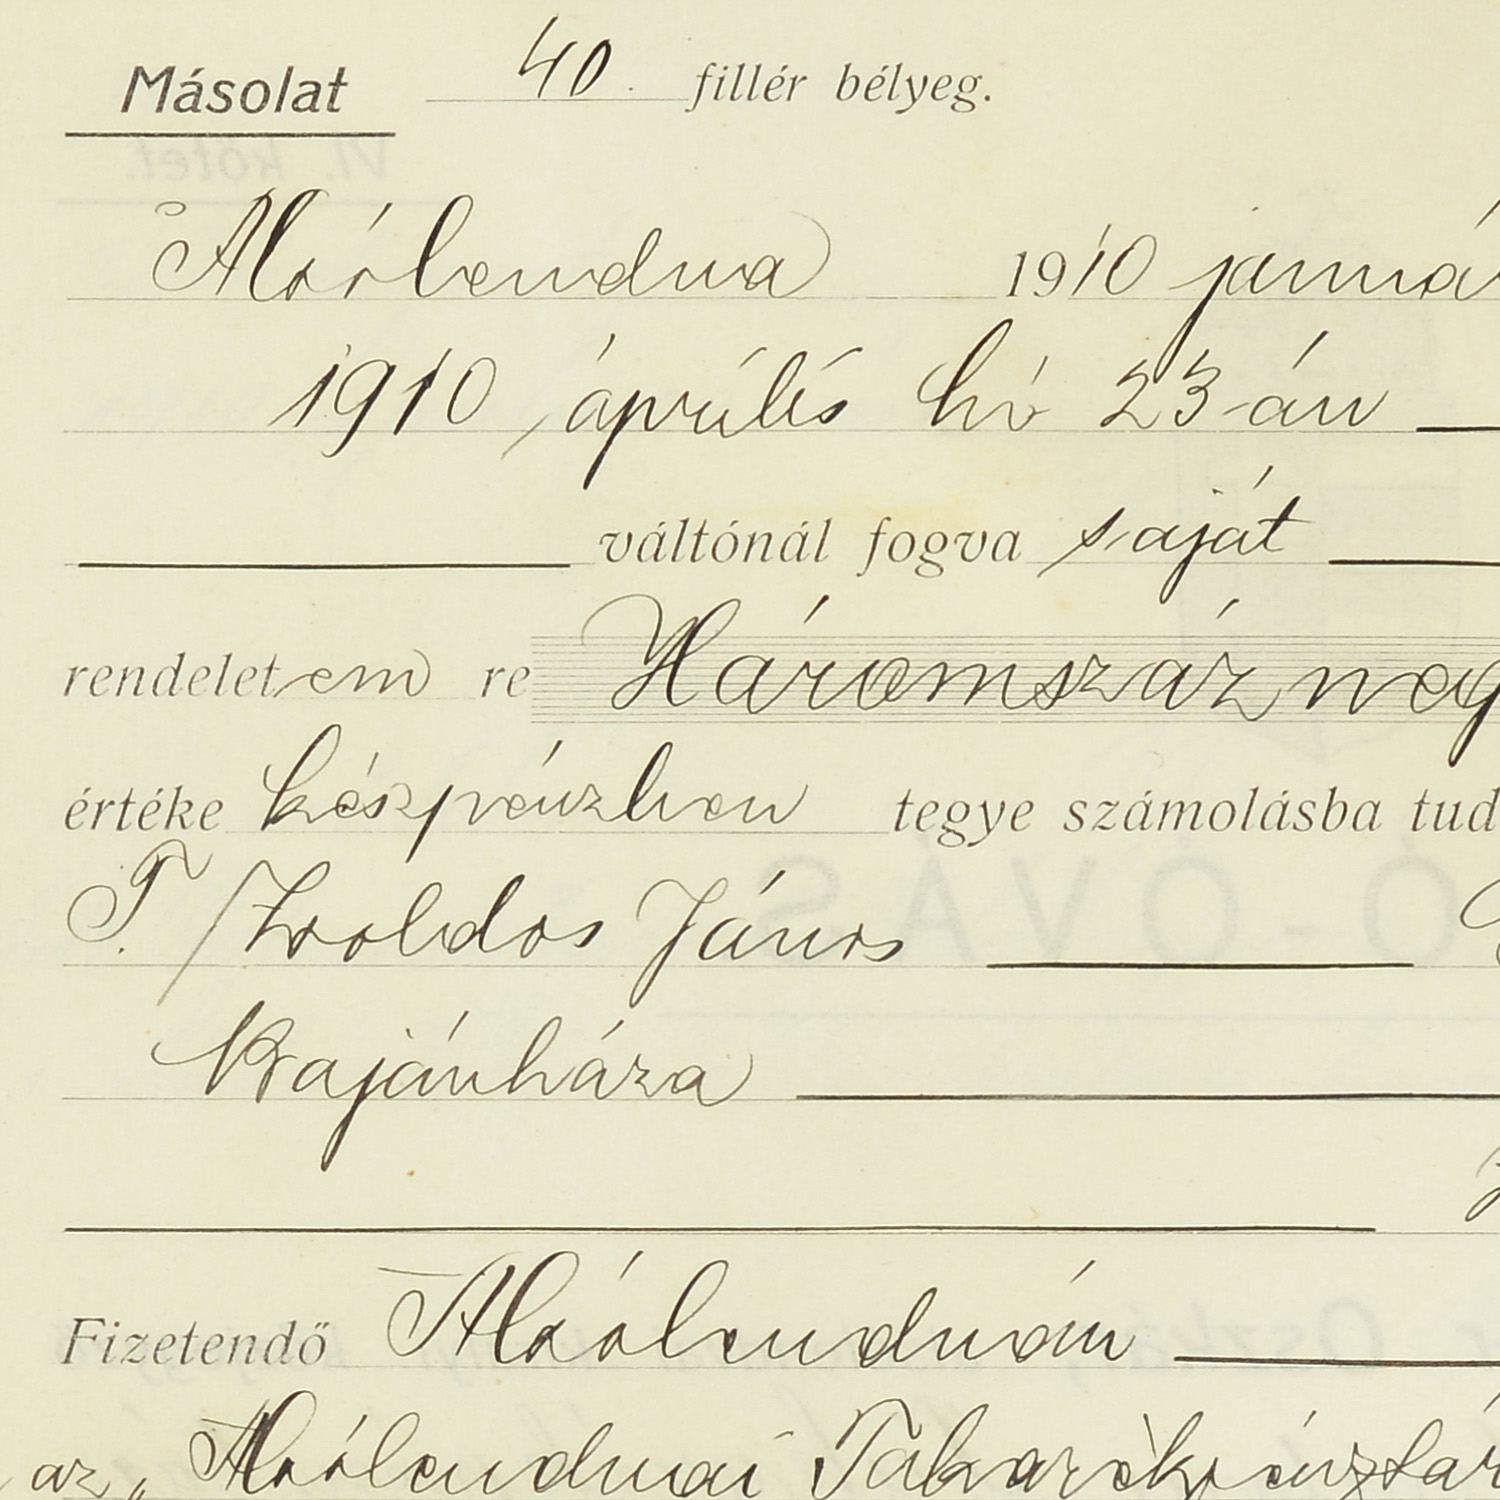 Másolat 40 fillér bélyeg.
Alsólendva 1910 januá
1910 április hó 23-án
váltónál fogva saját
rendeletem re Háromszáz neg
értéke készpénzben tegye számolásba tud
T. Zsoldos János
Bajánháza
Fizetendő Alsólendván
az „Alsólendvai Takarékpénztár